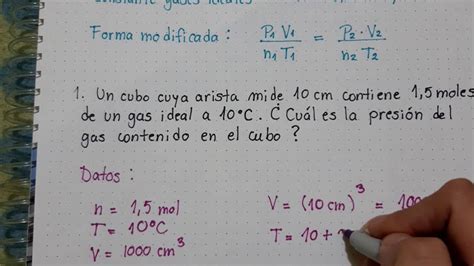 constante gases ideales
Forma modificada : P₁ V₁ / n₁ T₁ = P₂ · V₂ / n₂ T₂
1. Un cubo cuya arista mide 10 cm contiene 1,5 moles
de un gas ideal a 10°C. ¿Cuál es la presión del
gas contenido en el cubo ?
Datos :
n = 1,5 mol
T = 10°C
V = 1000 cm³
V = (10 cm)³ = 100
T = 10 +